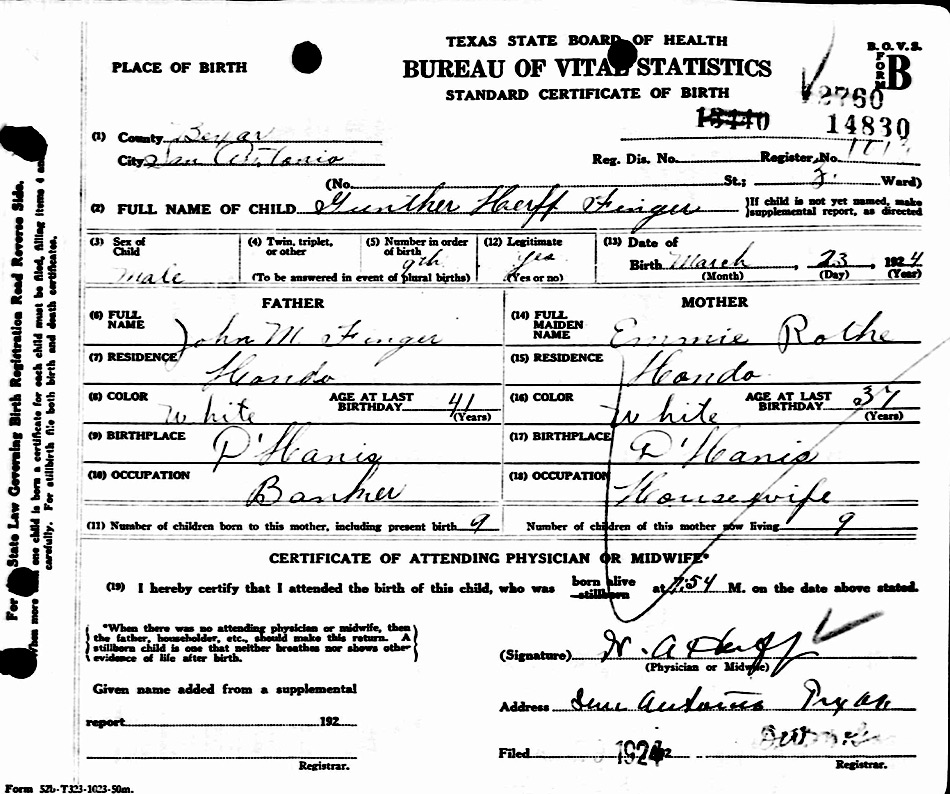 TEXAS STATE BOARD OF HEALTH
B. O. V. S.
PLACE OF BIRTH
BUREAU OF VITAL STATISTICS
FORM B
STANDARD CERTIFICATE OF BIRTH
2760
15440 14830
(1) County Bexar
City San Antonio
Reg. Dis. No. Register No.
(No. St.; Ward)
(2) FULL NAME OF CHILD Gunther Herff Finger
If child is not yet named, make
supplemental report, as directed
(3) Sex of Child Male
(4) Twin, triplet, or other
(5) Number in order of birth 9th
(To be answered in event of plural births)
(12) Legitimate Yes
(Yes or no)
(13) Date of
Birth March, 23, 1924
(Month) (Day) (Year)
FATHER
(6) FULL NAME John M Finger
(7) RESIDENCE Hondo
(8) COLOR White AGE AT LAST BIRTHDAY 41
(Years)
(9) BIRTHPLACE D'Hanis
(10) OCCUPATION Banker
(11) Number of children born to this mother, including present birth 9
MOTHER
(14) FULL MAIDEN NAME Emmie Rothe
(15) RESIDENCE Hondo
(16) COLOR White AGE AT LAST BIRTHDAY 37
(Years)
(17) BIRTHPLACE D'Hanis
(18) OCCUPATION Housewife
Number of children of this mother now living 9
CERTIFICATE OF ATTENDING PHYSICIAN OR MIDWIFE*
(19) I hereby certify that I attended the birth of this child, who was born alive stillborn at 7:54 M. on the date above stated.
*When there was no attending physician or midwife, then
the father, householder, etc., should make this return. A
stillborn child is one that neither breathes nor shows other
evidence of life after birth.
(Signature)
(Physician or Midwife)
Given name added from a supplemental
report 192
Registrar.
Address San Antonio Texas
Filed 1924 192
Registrar.
Form 52b-T323-1023-50m.
For State Law Governing Birth Registration Read Reverse Side.
When more one child is born a certificate for each child must be filed, filling items 4 and
carefully. For stillbirth file both birth and death certificates.